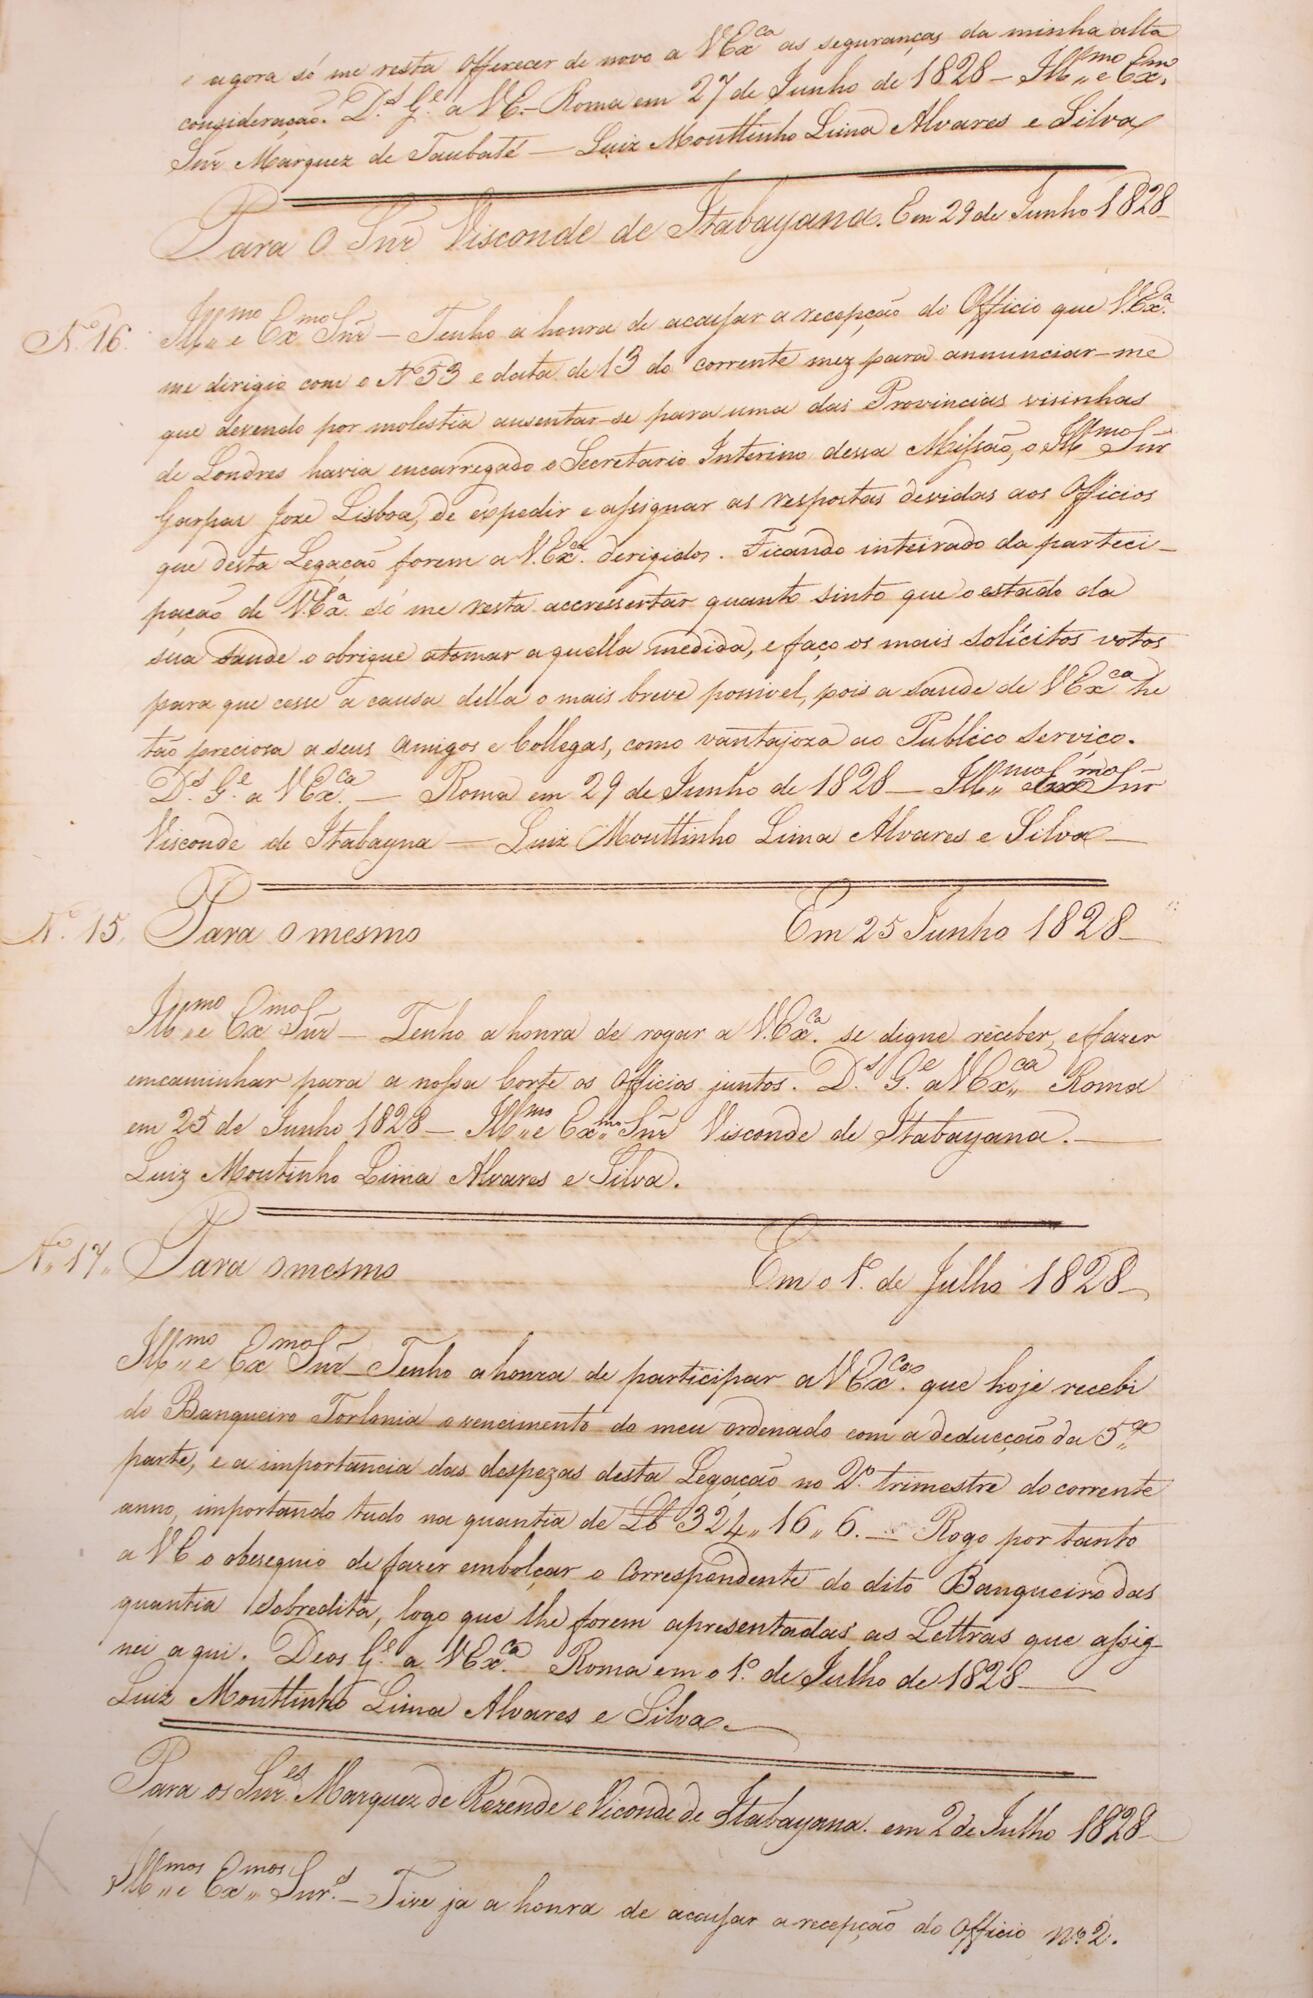 e agora só me resta offerecer de novo a V Ex.ca as seguranças da minha alta
consideração. D.s G.e a V E. – Roma em 27 de Junho de 1828 – Ill.mo e Ex.mo
Snr Marquez de Taubaté – Luiz Mouttinho Lima Alvares e Silva
Para O Snr Visconde de Itabayana. Em 29 de Junho 1828
N.º 16. Ill.mo e Ex.mo Snr – Tenho a honra de accusar a recepção do Officio que V. Ex.a
me dirigio com o Nº 53 e data de 13 do corrente mez para annunciar-me
que devendo por molestia ausentar-se para uma das Provincias visinhas
de Londres havia encarregado o Secretario Interino dessa Missão, o Ill.mo Snr
Gaspar Joze Lisboa, de expedir e assignar as respostas devidas aos Officios
que desta Legação forem a V. Ex.ca derigidos. Ficando inteirado da parteci-
pação de V. Ex.a só me resta accrescentar quanto sinto que o estado da
sua saude o obrigue a tomar aquella medida, e faço os mais solícitos votos
para que cesse a causa della o mais breve possivel, pois a saude de V Ex.ca he
tão preciosa a seus Amigos e Collegas, como vantajoza ao Publico Serviço.
D.s G.e a V Ex.ca – Roma em 29 de Junho de 1828 – Ill.mo e Ex.mo Snr
Visconde de Itabayna – Luiz Mouttinho Lima Alvares e Silva –
N.º 15. Para o mesmo Em 25 Junho 1828 –
Ill.mo e Ex.mo Snr – Tenho a honra de rogar a V. Ex.ca se degne receber, e fazer
encaminhar para a nossa Corte os Officios juntos. D.s G.e a V Ex.ca Roma
em 25 de Junho 1828 – Ill.mo e Ex.mo Snr Visconde de Itabayana. –
Luiz Moutinho Lima Alvares e Silva.
N.º 17. Para o mesmo Em o 1.º de Julho 1828 –
Ill.mo e Ex.mo Snr – Tenho a honra de participar a V Ex.ca que hoje recebi
do Banqueiro Torlonia o vencimento do meu ordenado com a deducção da 5.a
parte, e a importancia das despezas desta Legação no 2.º trimestre do corrente
anno, importando tudo na quantia de Lb 324 „ 16 „ 6. – Rogo por tanto
a V E o obsequio de fazer embolçar o Correspondente do dito Banqueiro das
quantia sobredita, logo que lhe forem apresentadas as Lettras que assig-
nei aqui. Deos G.e a V Ex.ca Roma em o 1.º de Julho de 1828 –
Luiz Mouttinho Lima Alvares e Silva. –
Para os Snr.es Marquez de Rezende e Viconde de Itabayana. em 2 de Julho 1828 –
Ill.mos e Ex.mos Snr.es – Tive ja a honra de accusar a recepção do Officio nº 2.